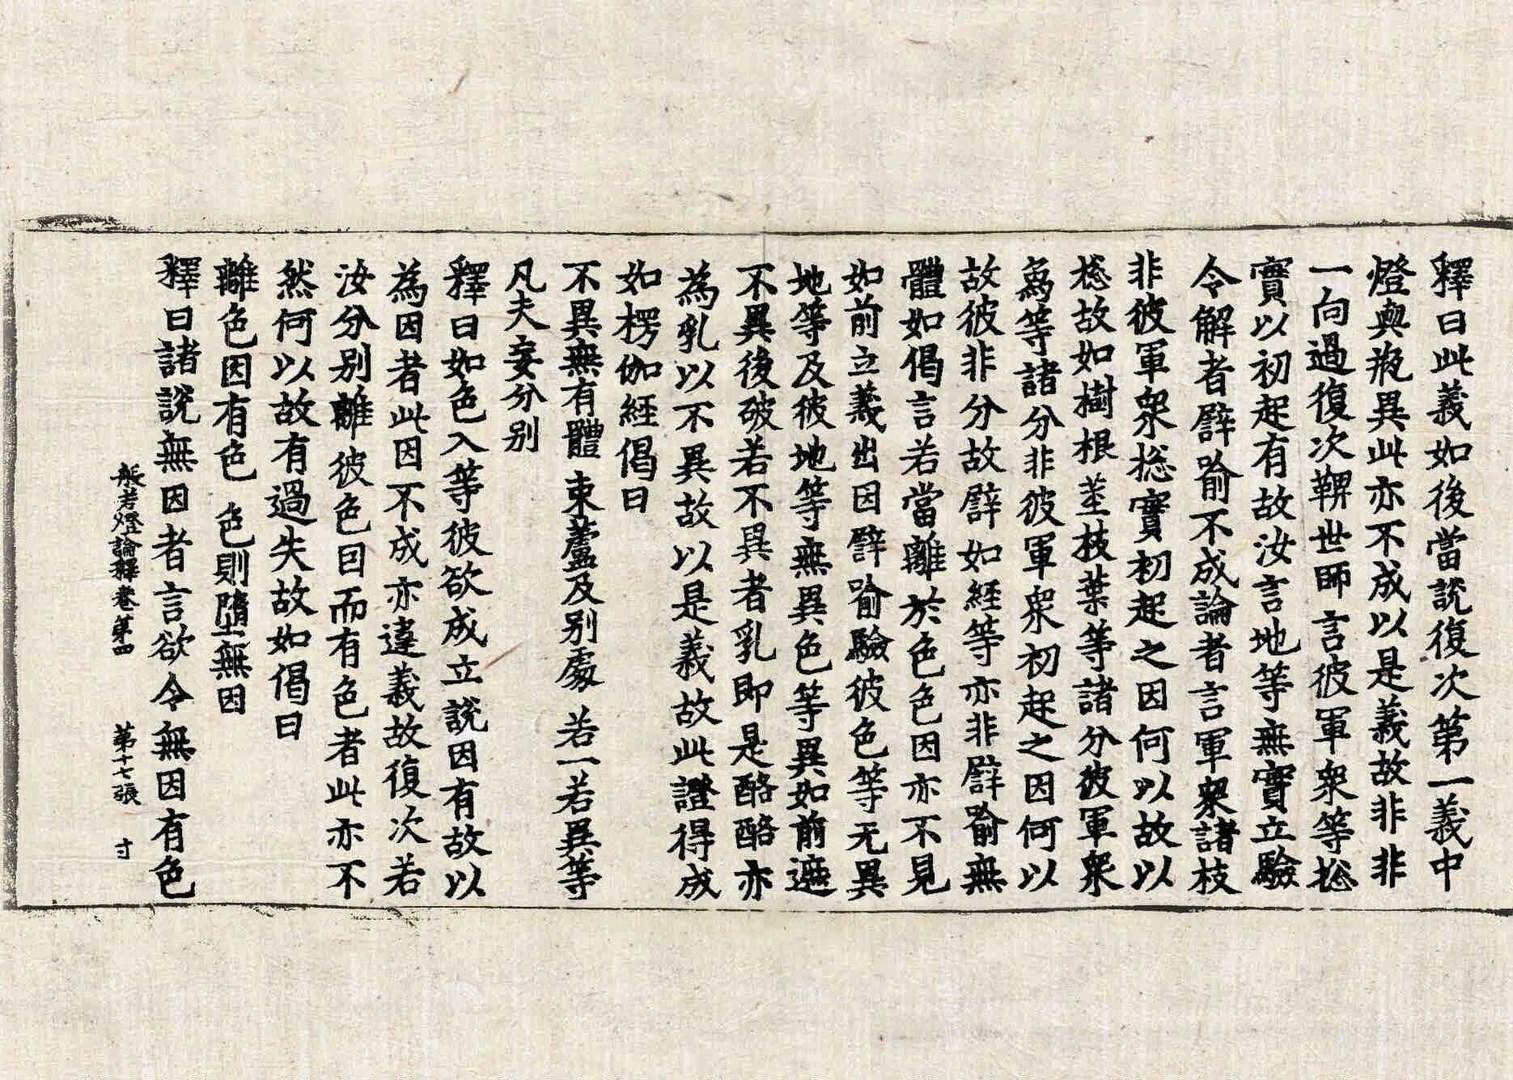 釋曰此義如後當說復次第一義中
燈與瓶異此亦不成以是義故非非
一向過復次鞞世師言彼軍衆等揔
實以初起有故汝言地等無實立驗
令解者譬喻不成論者言軍衆諸枝
非彼軍衆揔實初起之因何以故以
揔故如樹根莖枝葉等諸分彼軍衆
爲等諸分非彼軍衆初起之因何以
故彼非分故譬如經等亦非譬喻無
體如偈言若當離於色色因亦不見
如前立義出因譬喻驗彼色等无異
地等及彼地等無異色等異如前遮
不異後破若不異者乳即是酪酪亦
為乳以不異故以是義故此證得成
如楞伽經偈曰
不異無有體 東蘆及別處 若一若異等
凡夫妄分別
釋曰如色入等彼欲成立說因有故以
為因者此因不成亦違義故復次若
汝分別離彼色因而有色者此亦不
然何以故有過失故如偈曰
離色因有色 色則墮無因
釋曰諸說無因者言欲令無因有色
般若燈論釋卷第四 第十七張 寸